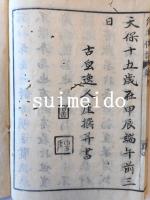 天保十五歳在甲辰端午前三
日
逸人 撰并書
suimeido